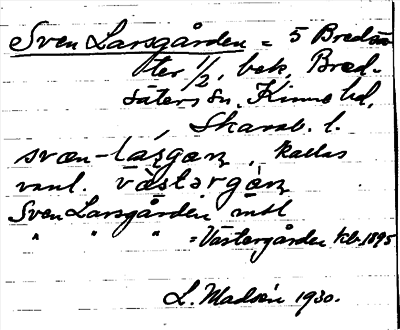 Sven Larsgården = 5 Bredsä-
ter 1/2, bek, Bred-
säters sn. Kinne hd,
Skarab. l.
svæn-laʒgaɳ, kallas
vanl. västərgaɳ
Sven Larsgården mtl
" " " = Västergården kb 1895
L. Madsén 1930.